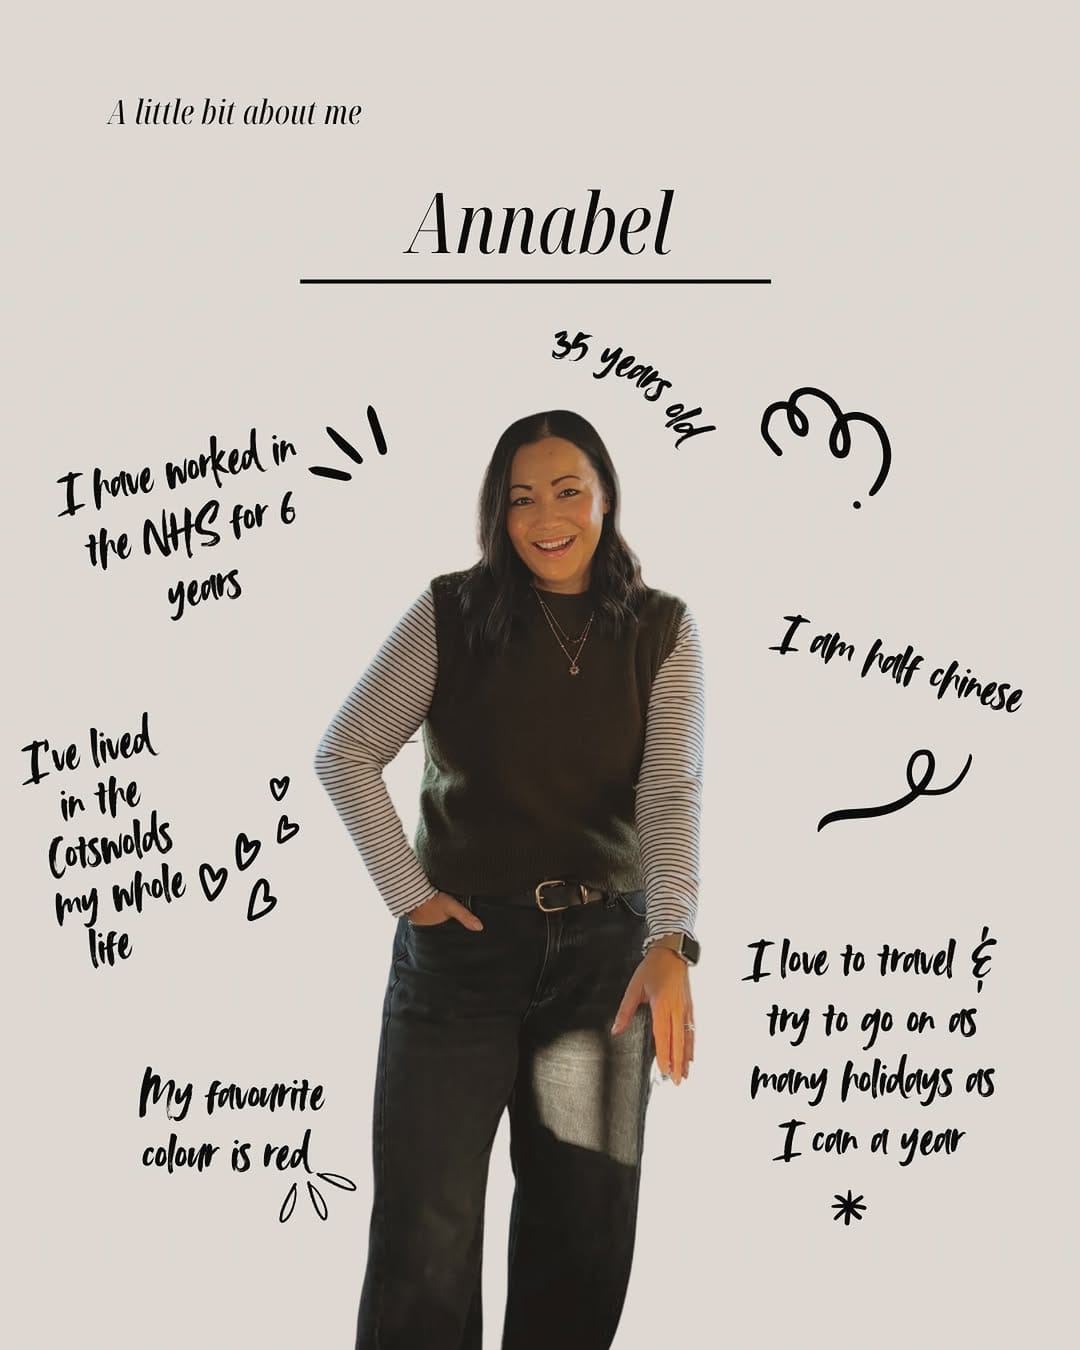 A little bit about me
Annabel
35 years old
I have worked in
the NHS for 6
years
I am half chinese
I've lived
in the
Cotswolds
my whole
life
I love to travel &
try to go on as
many holidays as
I can a year
My favourite
colour is red